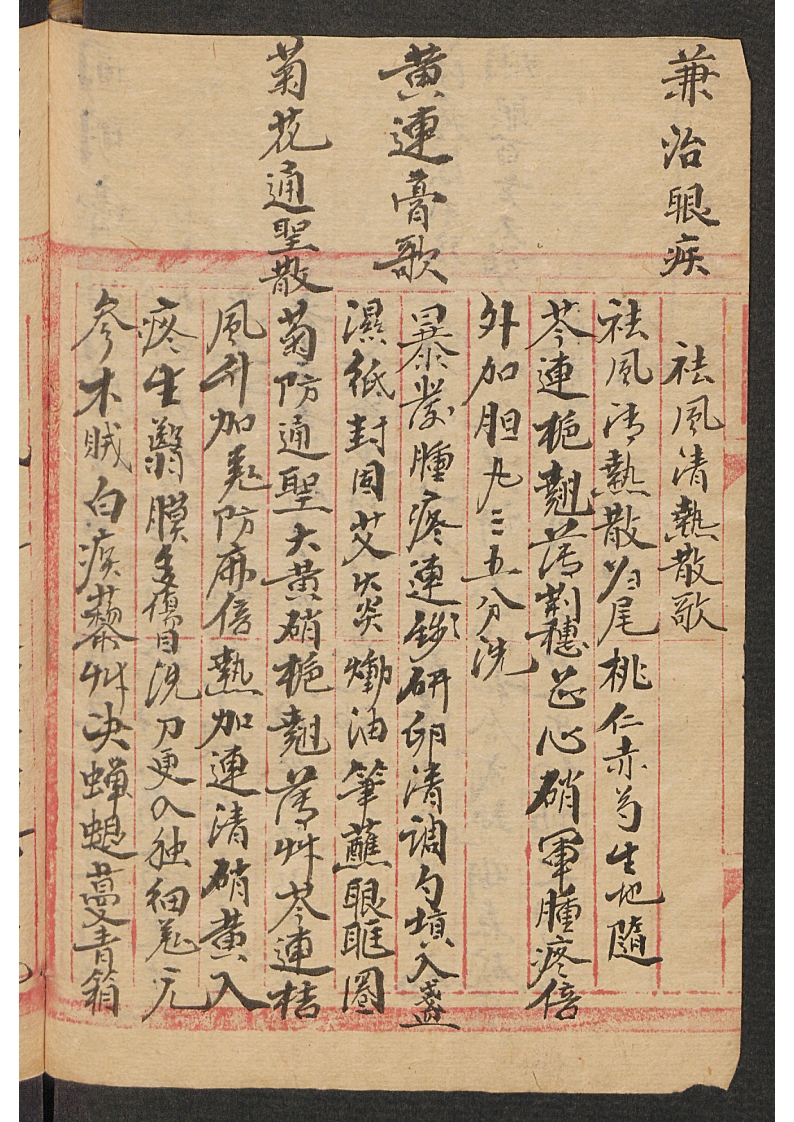 兼治眼疾
祛風清熱散歌
祛風清熱散歸尾桃仁赤芍生地隨
芩連梔翹薄荆穗燈心硝軍腫疼倍
外加胆丸三五分洗
黃連膏歌
暴發腫疼連研卵清調勻填入盞
濕紙封固艾火炎油筆蘸眼眶圈
菊花通聖散
菊防通聖大黃硝梔翹薄艸芩連桔
風升加羌防麻倍熱加連清硝黃入
疼生翳膜洗刀更入独細羌元
參木賊白蒺藜艸决蟬蜕蔓青箱